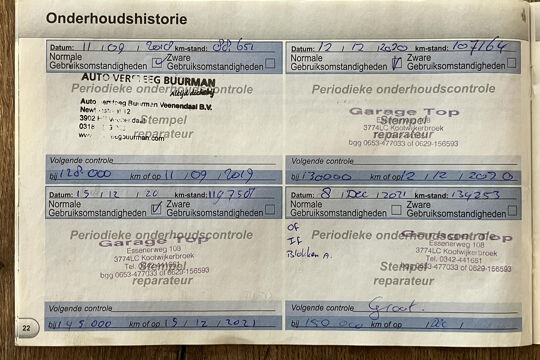 Onderhoudshistorie
Datum: 11 / 09 / 2018 km-stand: 88.651
Normale Gebruiksomstandigheden Zware Gebruiksomstandigheden
AUTO VERTREEG BUURMAN
Periodieke onderhoudscontrole
Buurman Veenendaal B.V.
Stempel
reparateur
Volgende controle
bij 128.000 km of op 11 / 09 / 2019
Datum: 12 / 12 / 2020 km-stand: 107164
Normale Gebruiksomstandigheden Zware Gebruiksomstandigheden
Periodieke onderhoudscontrole
Garage Top
Stempel
3774LC Kootwijkerbroek
reparateur
bgg 0653-477033 of 0629-156593
Volgende controle
bij 130000 km of op 12 / 12 / 2020
Datum: 15 / 12 / 20 km-stand:
Normale Gebruiksomstandigheden Zware Gebruiksomstandigheden
Periodieke onderhoudscontrole
Garage Top
Essenerweg 108
3774LC Kootwijkerbroek
Stempel
bgg 0653-477033 of 0629-156593
reparateur
Volgende controle
bij 145.000 km of op 15 / 12 / 2021
Datum: 8 / Dec / 2021 km-stand: 134253
Normale Gebruiksomstandigheden Zware Gebruiksomstandigheden
Of
If
Blokken A.
Periodieke onderhoudscontrole
Essenerweg 108
3774LC Kootwijkerbroek
Tel. 0342-441651
Stempel
bgg 0653-477033 of 0629-156593
reparateur
Volgende controle
Groot.
bij 150.000 km of op / Dec /
22